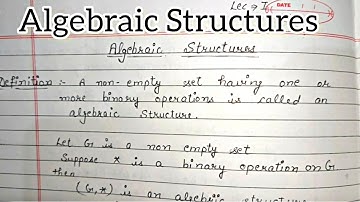 Algebraic Structures
Lec → I
DATE
Algebraic Structures
Definition :- A non-empty set having one or
more binary operations is called an
algebraic Structure.
Let G is a non empty set
Suppose * is a binary operation on G
then
(G,*) is an algebiic structure